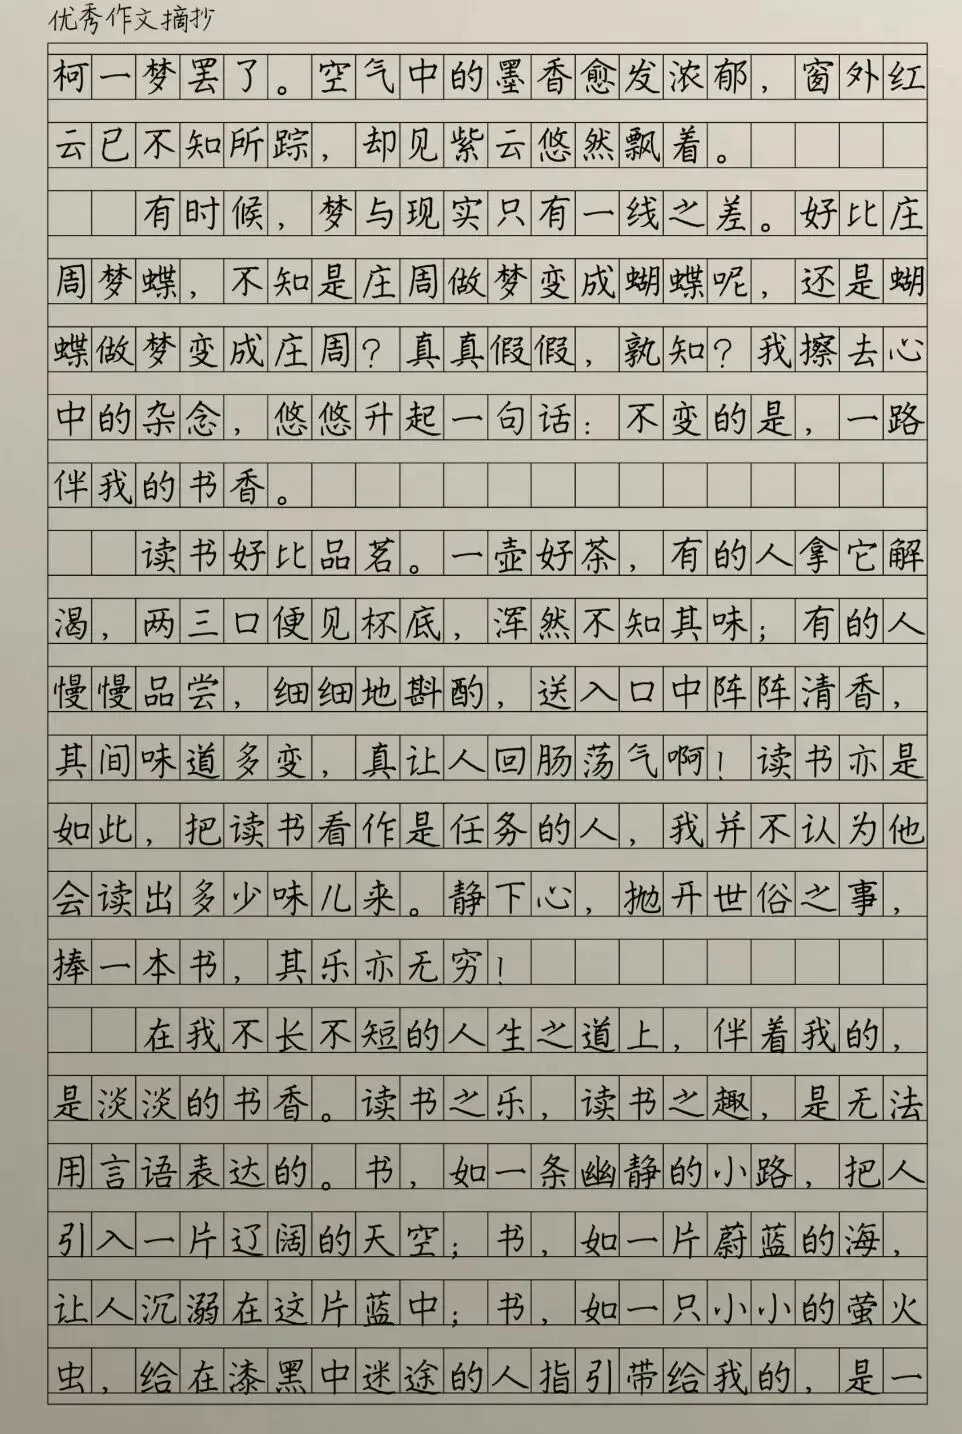 优秀作文摘抄
柯一梦罢了。空气中的墨香愈发浓郁，窗外红
云已不知所踪，却见紫云悠然飘着。
有时候，梦与现实只有一线之差。好比庄
周梦蝶，不知是庄周做梦变成蝴蝶呢，还是蝴
蝶做梦变成庄周？真真假假，孰知？我擦去心
中的杂念，悠悠升起一句话：不变的是，一路
伴我的书香。
读书好比品茗。一壶好茶，有的人拿它解
渴，两三口便见杯底，浑然不知其味；有的人
慢慢品尝，细细地斟酌，送入口中阵阵清香，
其间味道多变，真让人回肠荡气啊！读书亦是
如此，把读书看作是任务的人，我并不认为他
会读出多少味儿来。静下心，抛开世俗之事，
捧一本书，其乐亦无穷！
在我不长不短的人生之道上，伴着我的，
是淡淡的书香。读书之乐，读书之趣，是无法
用言语表达的。书，如一条幽静的小路，把人
引入一片辽阔的天空；书，如一片蔚蓝的海，
让人沉溺在这片蓝中；书，如一只小小的萤火
虫，给在漆黑中迷途的人指引带给我的，是一